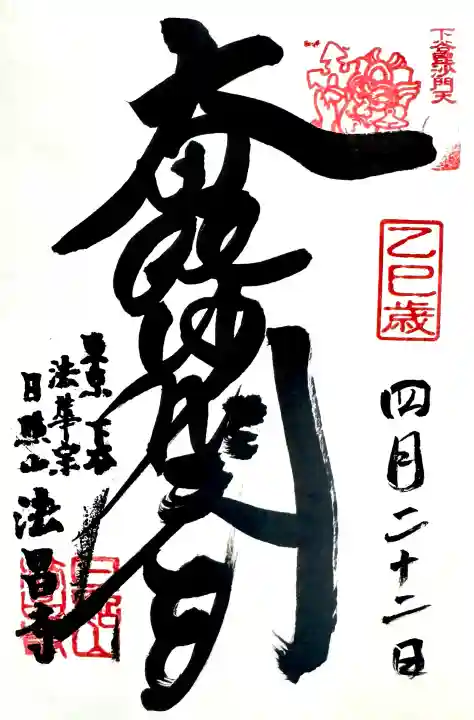 下谷毘沙門天
乙巳歳
四月二十二日
毘沙門天
東京 下谷
法華宗
日照山 法昌寺